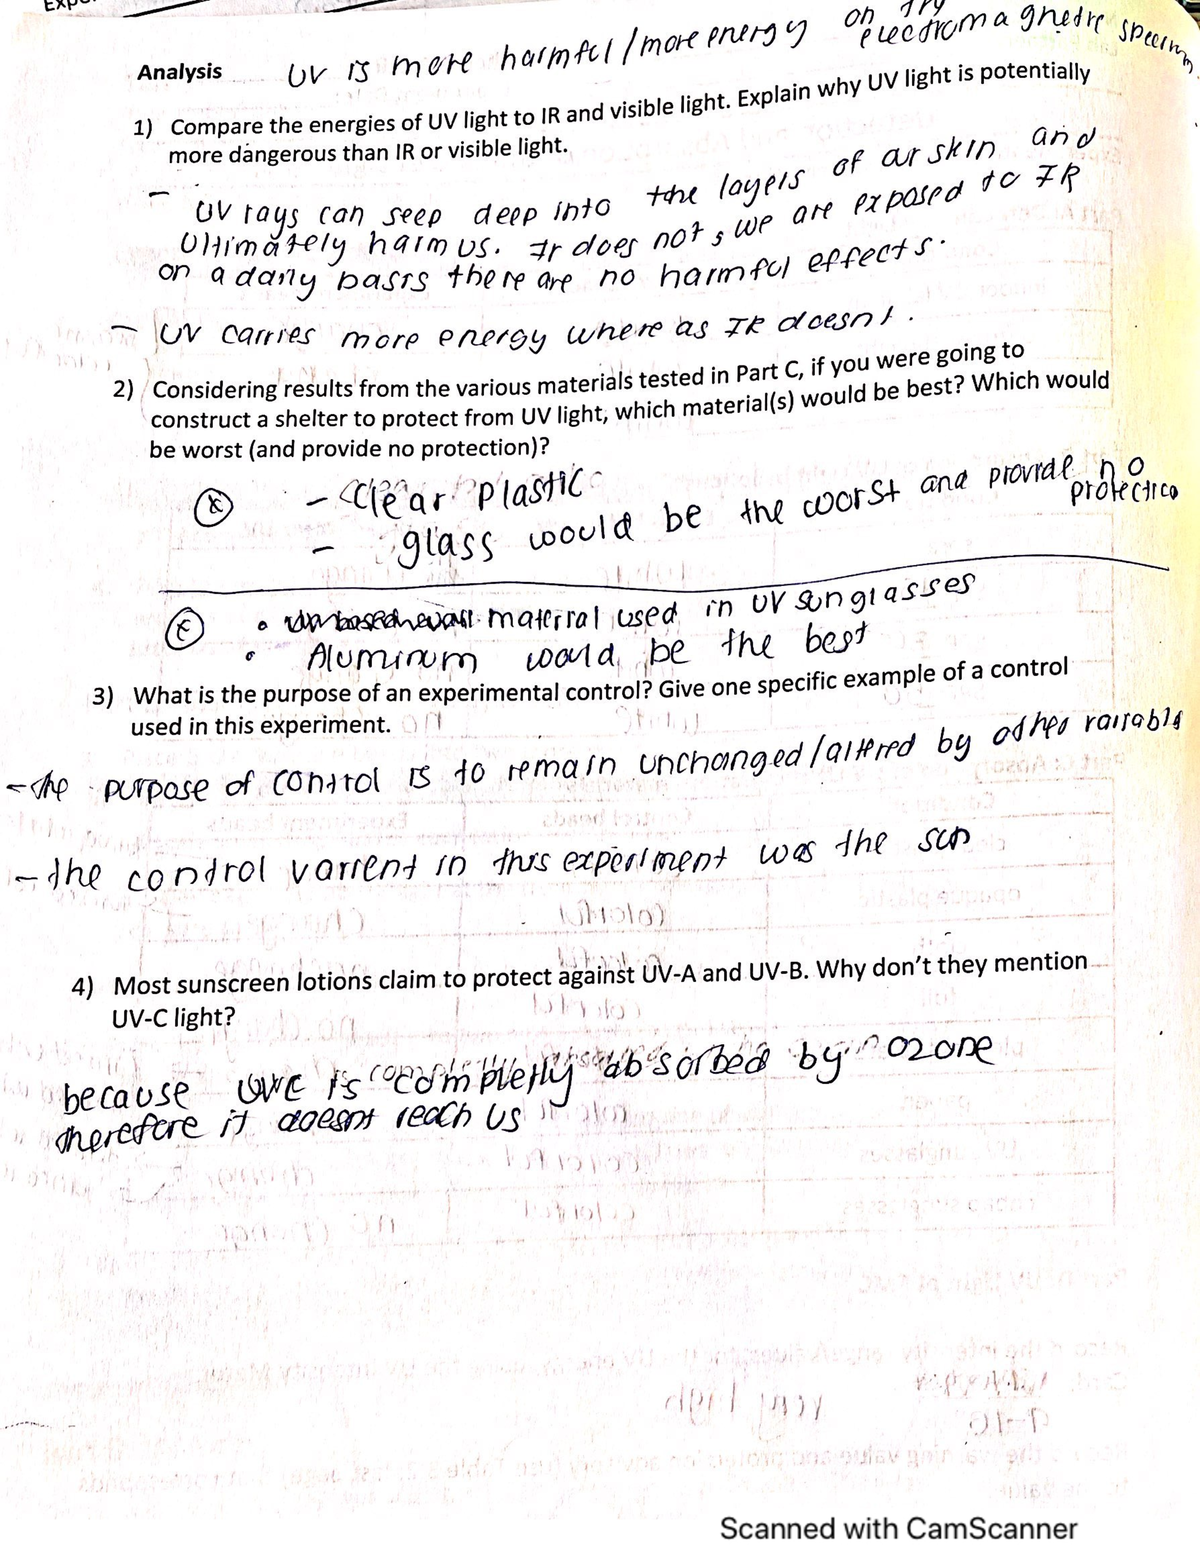 Analysis
UV is more harmful / more energy on
electromagnetic
1) Compare the energies of UV light to IR and visible light. Explain why UV light is potentially
more dangerous than IR or visible light.
- UV rays can seep deep into the layers of our skin and
Ultimately harm us. Ir does not, we are exposed to IR
on a daily basis there are no harmful effects.
- UV carries more energy where as IR doesnt.
2) Considering results from the various materials tested in Part C, if you were going to
construct a shelter to protect from UV light, which material(s) would be best? Which would
be worst (and provide no protection)?
- Clear plastic
- glass would be the worst and provide no
protection
• material used in UV sunglasses
• Aluminum would be the best
3) What is the purpose of an experimental control? Give one specific example of a control
used in this experiment.
- the purpose of control is to remain unchanged/altered by other
- the control in this experiment was the sun
4) Most sunscreen lotions claim to protect against UV-A and UV-B. Why don't they mention
UV-C light?
because UVC is completly absorbed by ozone
therefore it doesnt reach us
Scanned with CamScanner